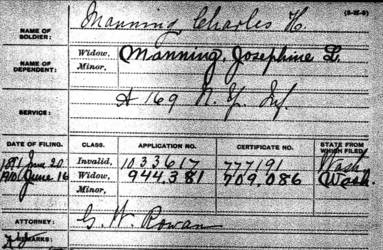 (3-15-6)
NAME OF SOLDIER: Manning Charles H.
NAME OF DEPENDENT: Widow, Manning, Josephine L.
Minor,
SERVICE: A 169 N.Y. Inf.
DATE OF FILING. CLASS. APPLICATION NO. CERTIFICATE NO. STATE FROM WHICH FILED
1891 June 20 Invalid, 1033617 777191 Wash
1910 June 16 Widow, 944,381 709,086 Wash.
Minor,
ATTORNEY: G. W. Rowan
REMARKS: